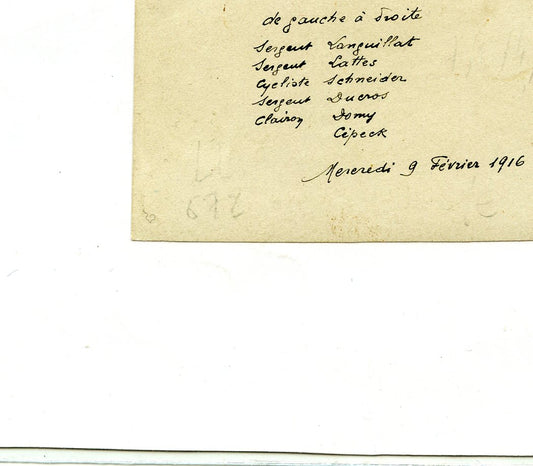 de gauche à droite
Sergent Languillat
Sergent Lattes
Cycliste Schneider
Sergent Ducros
Clairon Domy
Cépeck
Mercredi 9 Février 1916